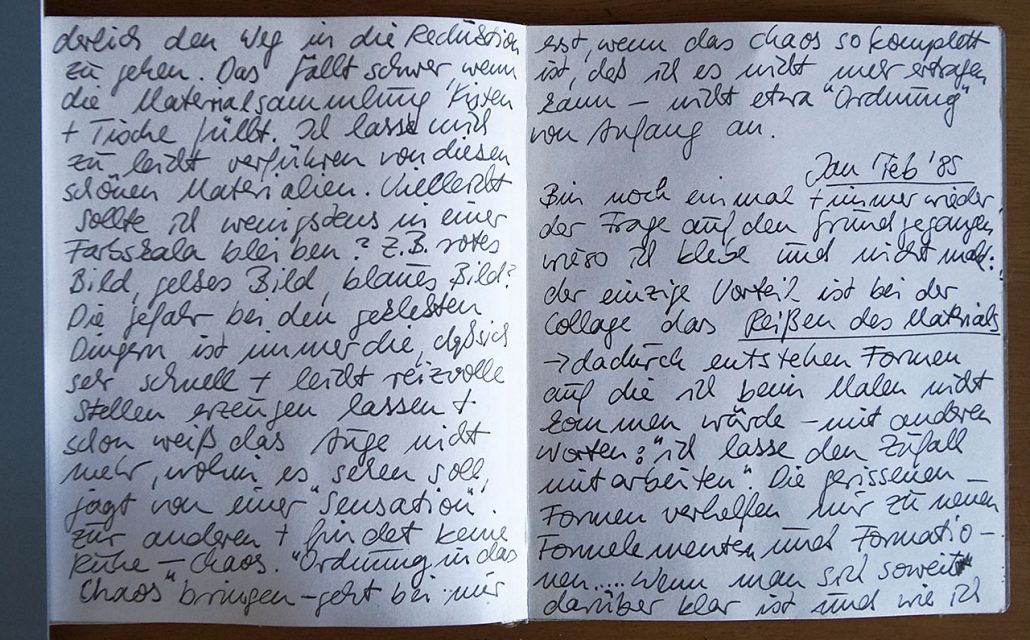 derlich den Weg in die Reduktion
zu gehen. Das fällt schwer, wenn
die Materialsammlung Kisten
+ Tische füllt. Ich lasse mich
zu leicht verführen von diesen
schönen Materialien. Vielleicht
sollte ich wenigstens in einer
Farbskala bleiben? Z.B. rotes
Bild, gelbes Bild, blaues Bild?
Die Gefahr bei den geklebten
Dingern ist immer die, daß sich
sehr schnell + leicht reizvolle
Stellen erzeugen lassen +
schon weiß das Auge nicht
mehr, wohin es sehen soll,
jagt von einer "Sensation"
zur anderen + findet keine
Ruhe – Chaos. "Ordnung in das
Chaos" bringen – geht bei mir
erst, wenn das Chaos so komplett
ist, daß ich es nicht mehr ertragen
kann – nicht etwa "Ordnung"
von Anfang an.
Jan Feb '85
Bin noch einmal + immer wieder
der Frage auf den Grund gegangen,
wieso ich klebe und nicht mal:
der einzige Vorteil ist bei der
Collage das Reißen des Materials
→ dadurch entstehen Formen
auf die ich beim Malen nicht
kommen würde – mit anderen
Worten: "ich lasse den Zufall
mitarbeiten". Die gerissenen
Formen verhelfen mir zu neuen
Formelementen und Formatio-
nen.... Wenn man sich soweit
darüber klar ist und wie ich